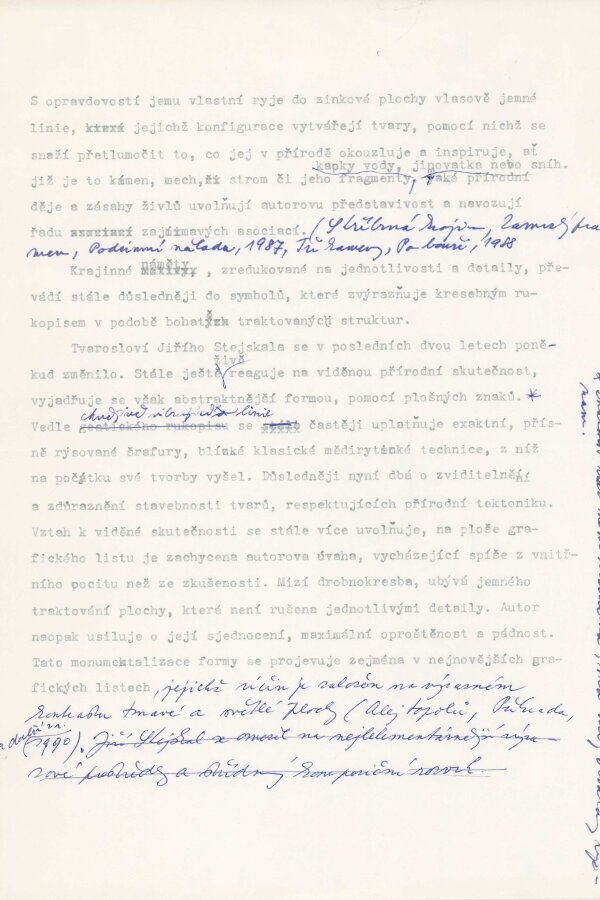 S opravdovostí jemu vlastní ryje do zinkové plochy vlasově jemné
linie, které jejichž konfigurace vytvářejí tvary, pomocí nichž se
snaží přetlumočit to, co jej v přírodě okouzluje a inspiruje, ať
kapky vody, jinovatka nebo sníh.
již je to kámen, mech, či strom či jeho fragmenty, také přírodní
děje a zásahy živlů uvolňují autorovu představivost a navozují
řadu asociací zajímavých asociací. (Stříbrná krajina, Zamrzlý pra
men, Podzimní nálada, 1987, Tři kameny, Po bouři, 1988
náměty
Krajinné motivy, , zredukované na jednotlivosti a detaily, pře-
vádí stále důsledněji do symbolů, které zvýrazňuje kresebným ru-
kopisem v podobě bohatě traktovaných struktur.
Tvarosloví Jiřího Stejskala se v posledních dvou letech poně-
živě
kud změnilo. Stále ještě reaguje na viděnou přírodní skutečnost,
vyjadřuje se však abstraktnější formou, pomocí plošných znaků. *
linie
Vedle gestického rukopisu se stále častěji uplatňuje exaktní, přís-
ně rýsované šrafury, blízké klasické mědirytecké technice, z níž
na počátku své tvorby vyšel. Důsledněji nyní dbá o zviditelnění
a zdůraznění stavebnosti tvarů, respektujících přírodní tektoniku.
Vztah k viděné skutečnosti se stále více uvolňuje, na ploše gra-
fického listu je zachycena autorova úvaha, vycházející spíše z vnitř-
ního pocitu než ze zkušenosti. Mizí drobnokresba, ubývá jemného
traktování plochy, která není rušena jednotlivými detaily. Autor
naopak usiluje o její sjednocení, maximální oproštěnost a pádnost.
Tato monumentalizace formy se projevuje zejména v nejnovějších gra-
fických listech, jejichž účin je založen na výrazném
kontrastu tmavé a světlé plochy (Alej topolů,
a další z r.
1990). Jiří Stejskal se omezil na nejelementárnější výra
zové prostředky a střídmý kompoziční rozvrh.